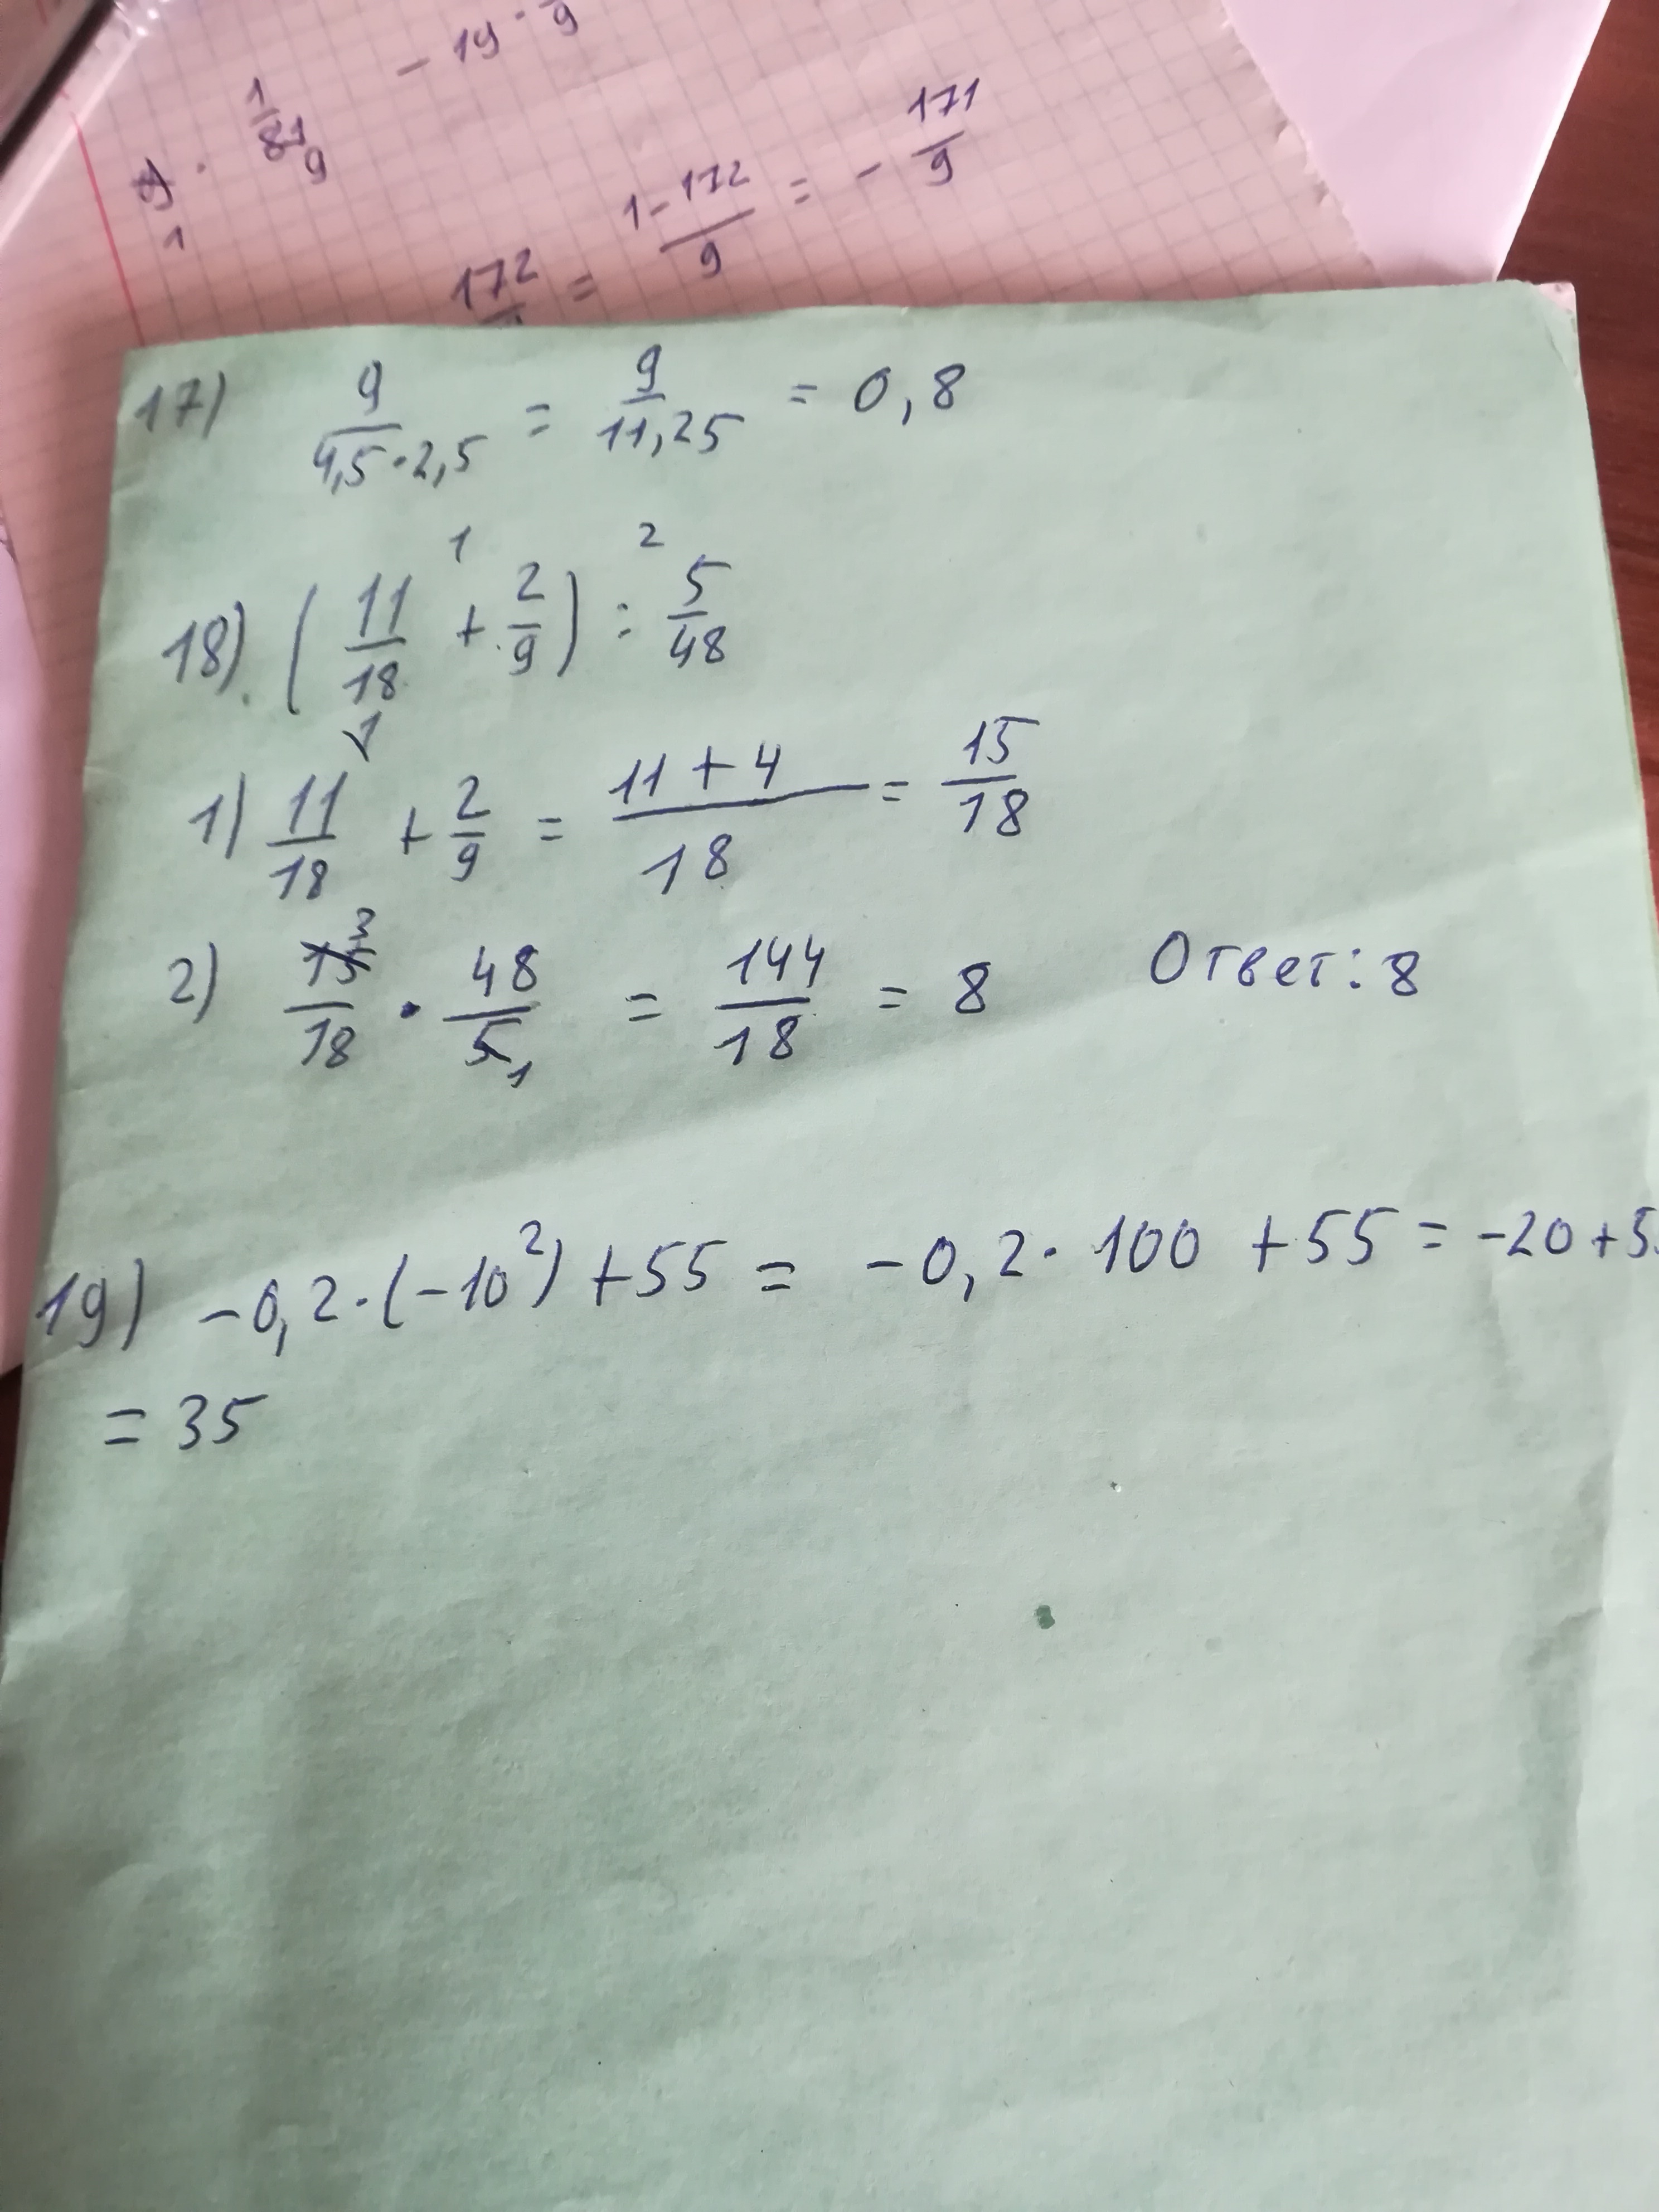 1/81 9 - 19 · /9
1
172 = 1-172/9 = - 171/9
17) 9/4,5·2,5 = 9/11,25 = 0,8
1 2
18). (11/18 + 2/9) : 5/48
1) 11/18 + 2/9 = 11+4/18 = 15/18
2) 15 3/18 · 48/5 1 = 144/18 = 8 Ответ: 8
19) -0,2·(-10²)+55 = -0,2· 100 +55 = -20+5
= 35